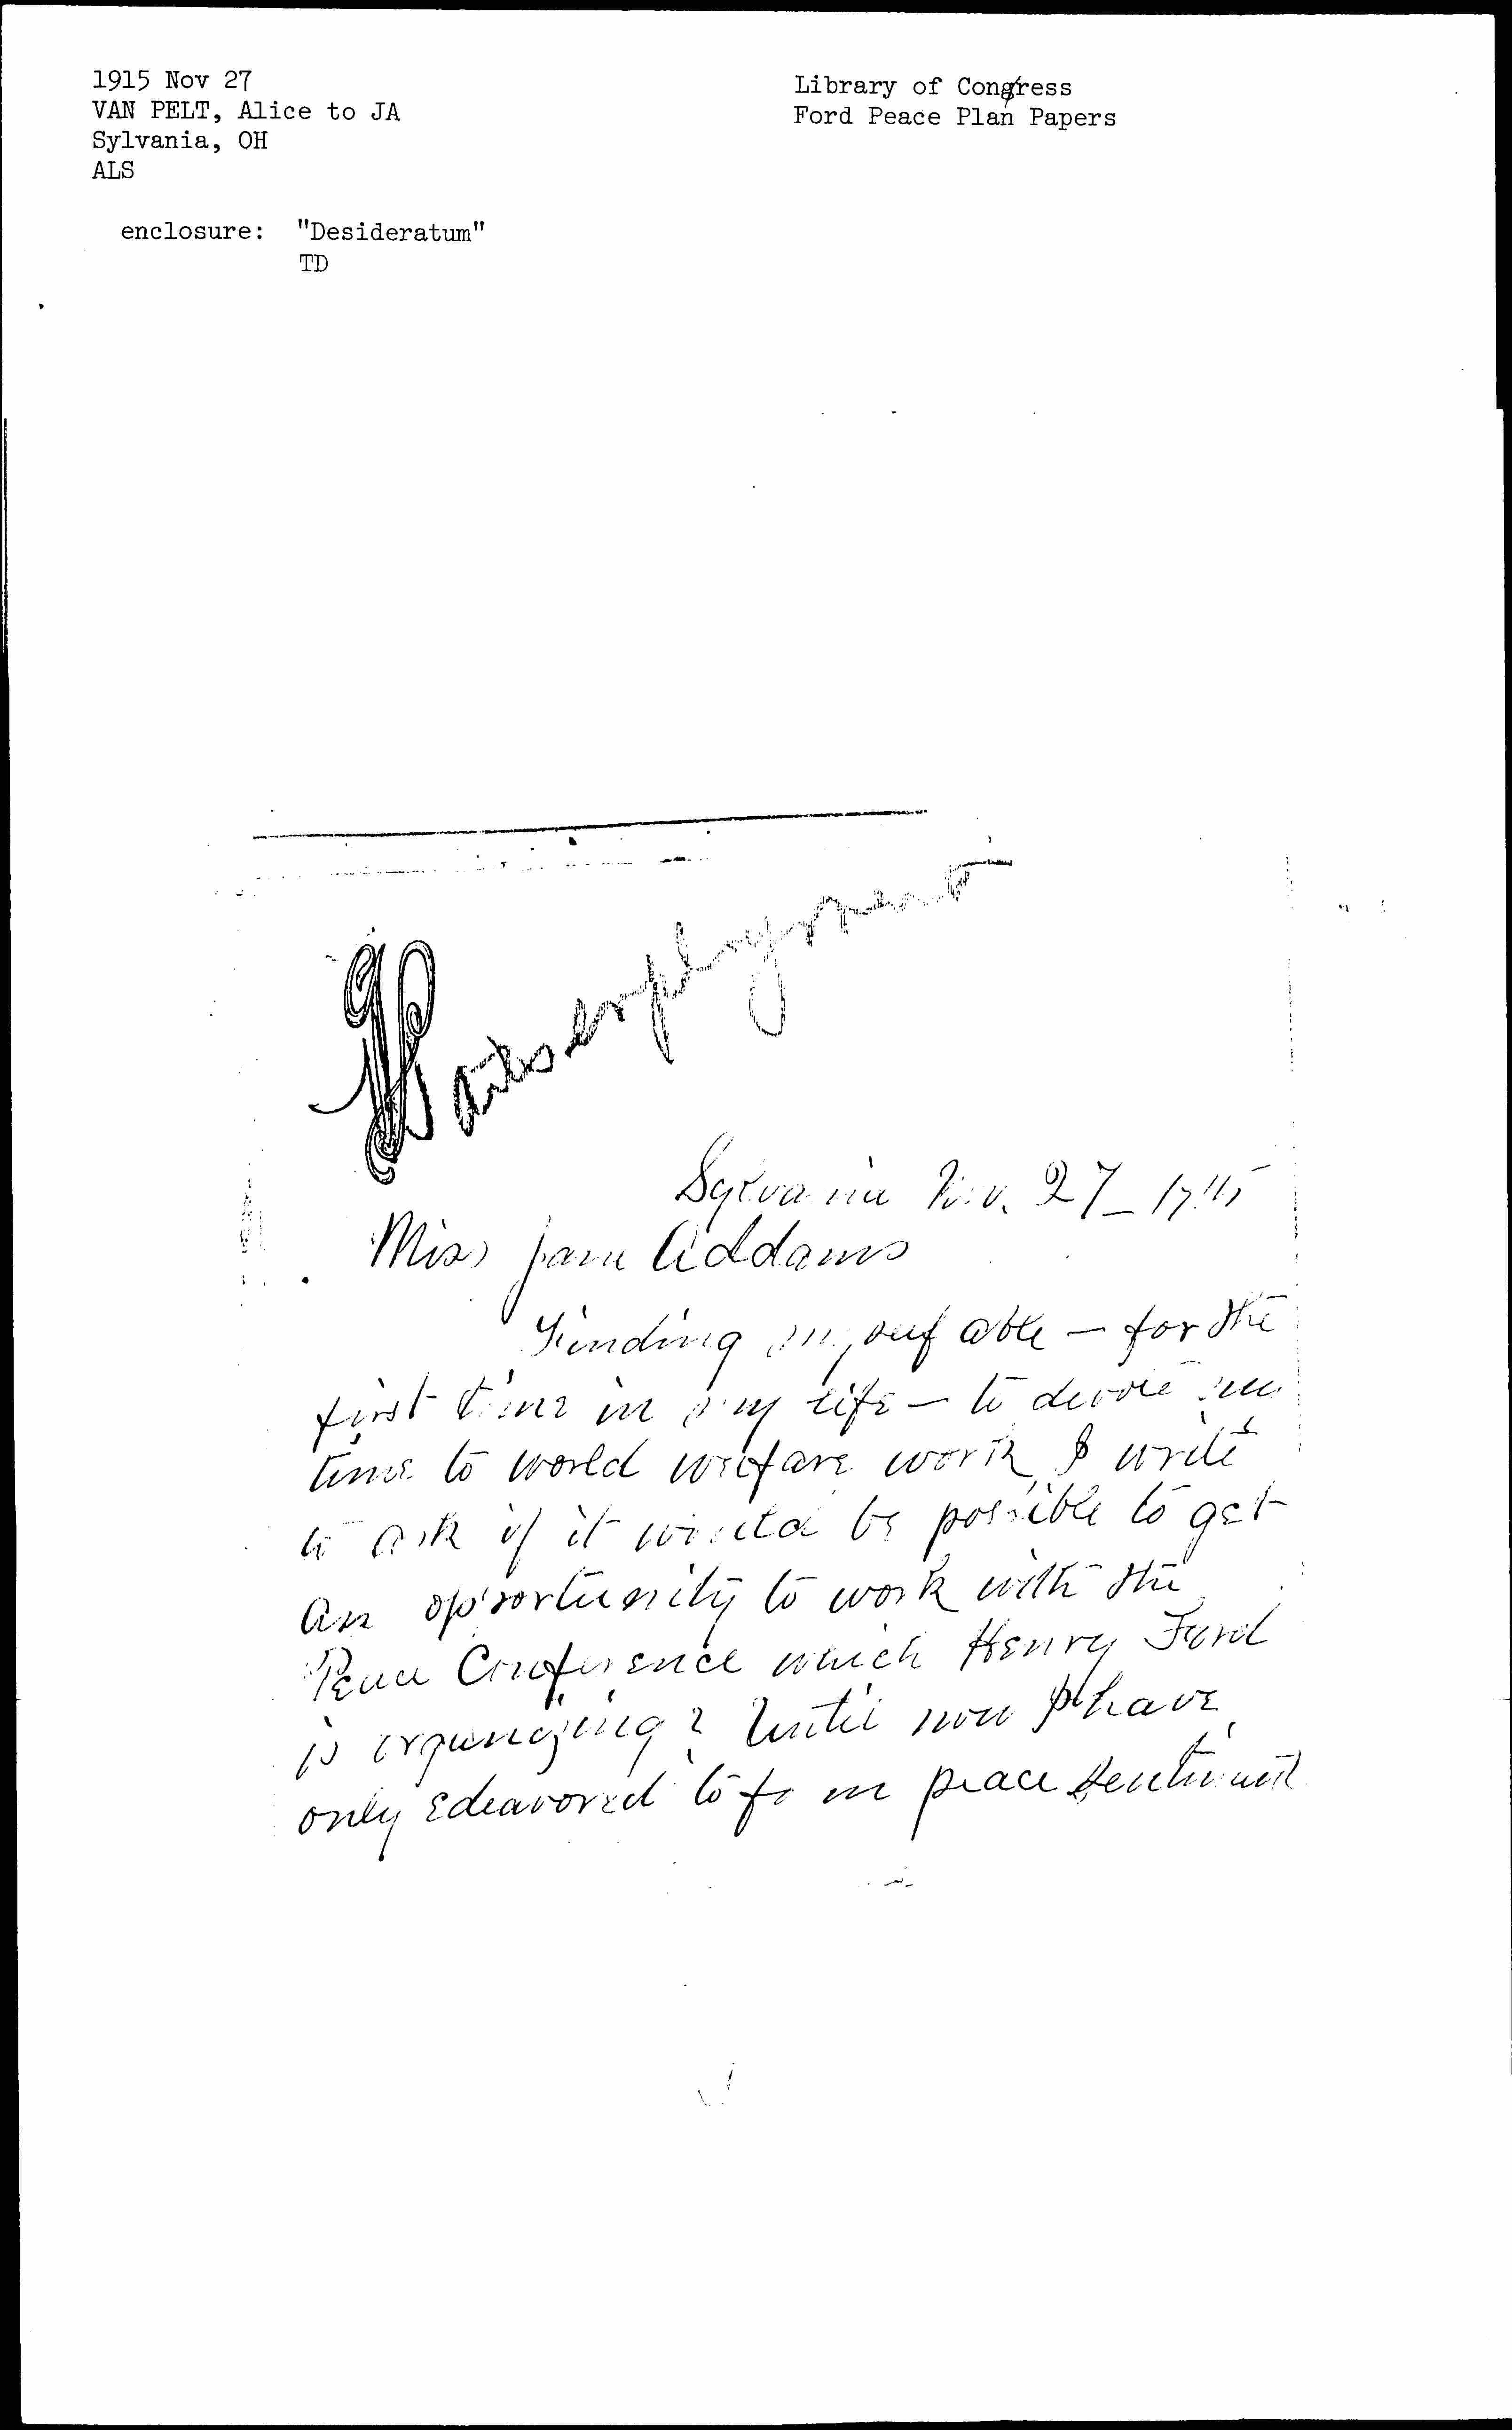 1915 Nov 27
VAN PELT, Alice to JA
Sylvania, OH
ALS
enclosure: "Desideratum"
TD
Library of Congress
Ford Peace Plan Papers
Wants employment
Sylvania Nov. 27_1915
Miss Jane Addams
Finding myself able — for the
first time in my life — to devote my
time to world welfare work I write
to ask if it would be possible to get
an opportunity to work with the
Peace Conference which Henry Ford
is organizing? Until now I have
only edeavored to fo m peace sentiment